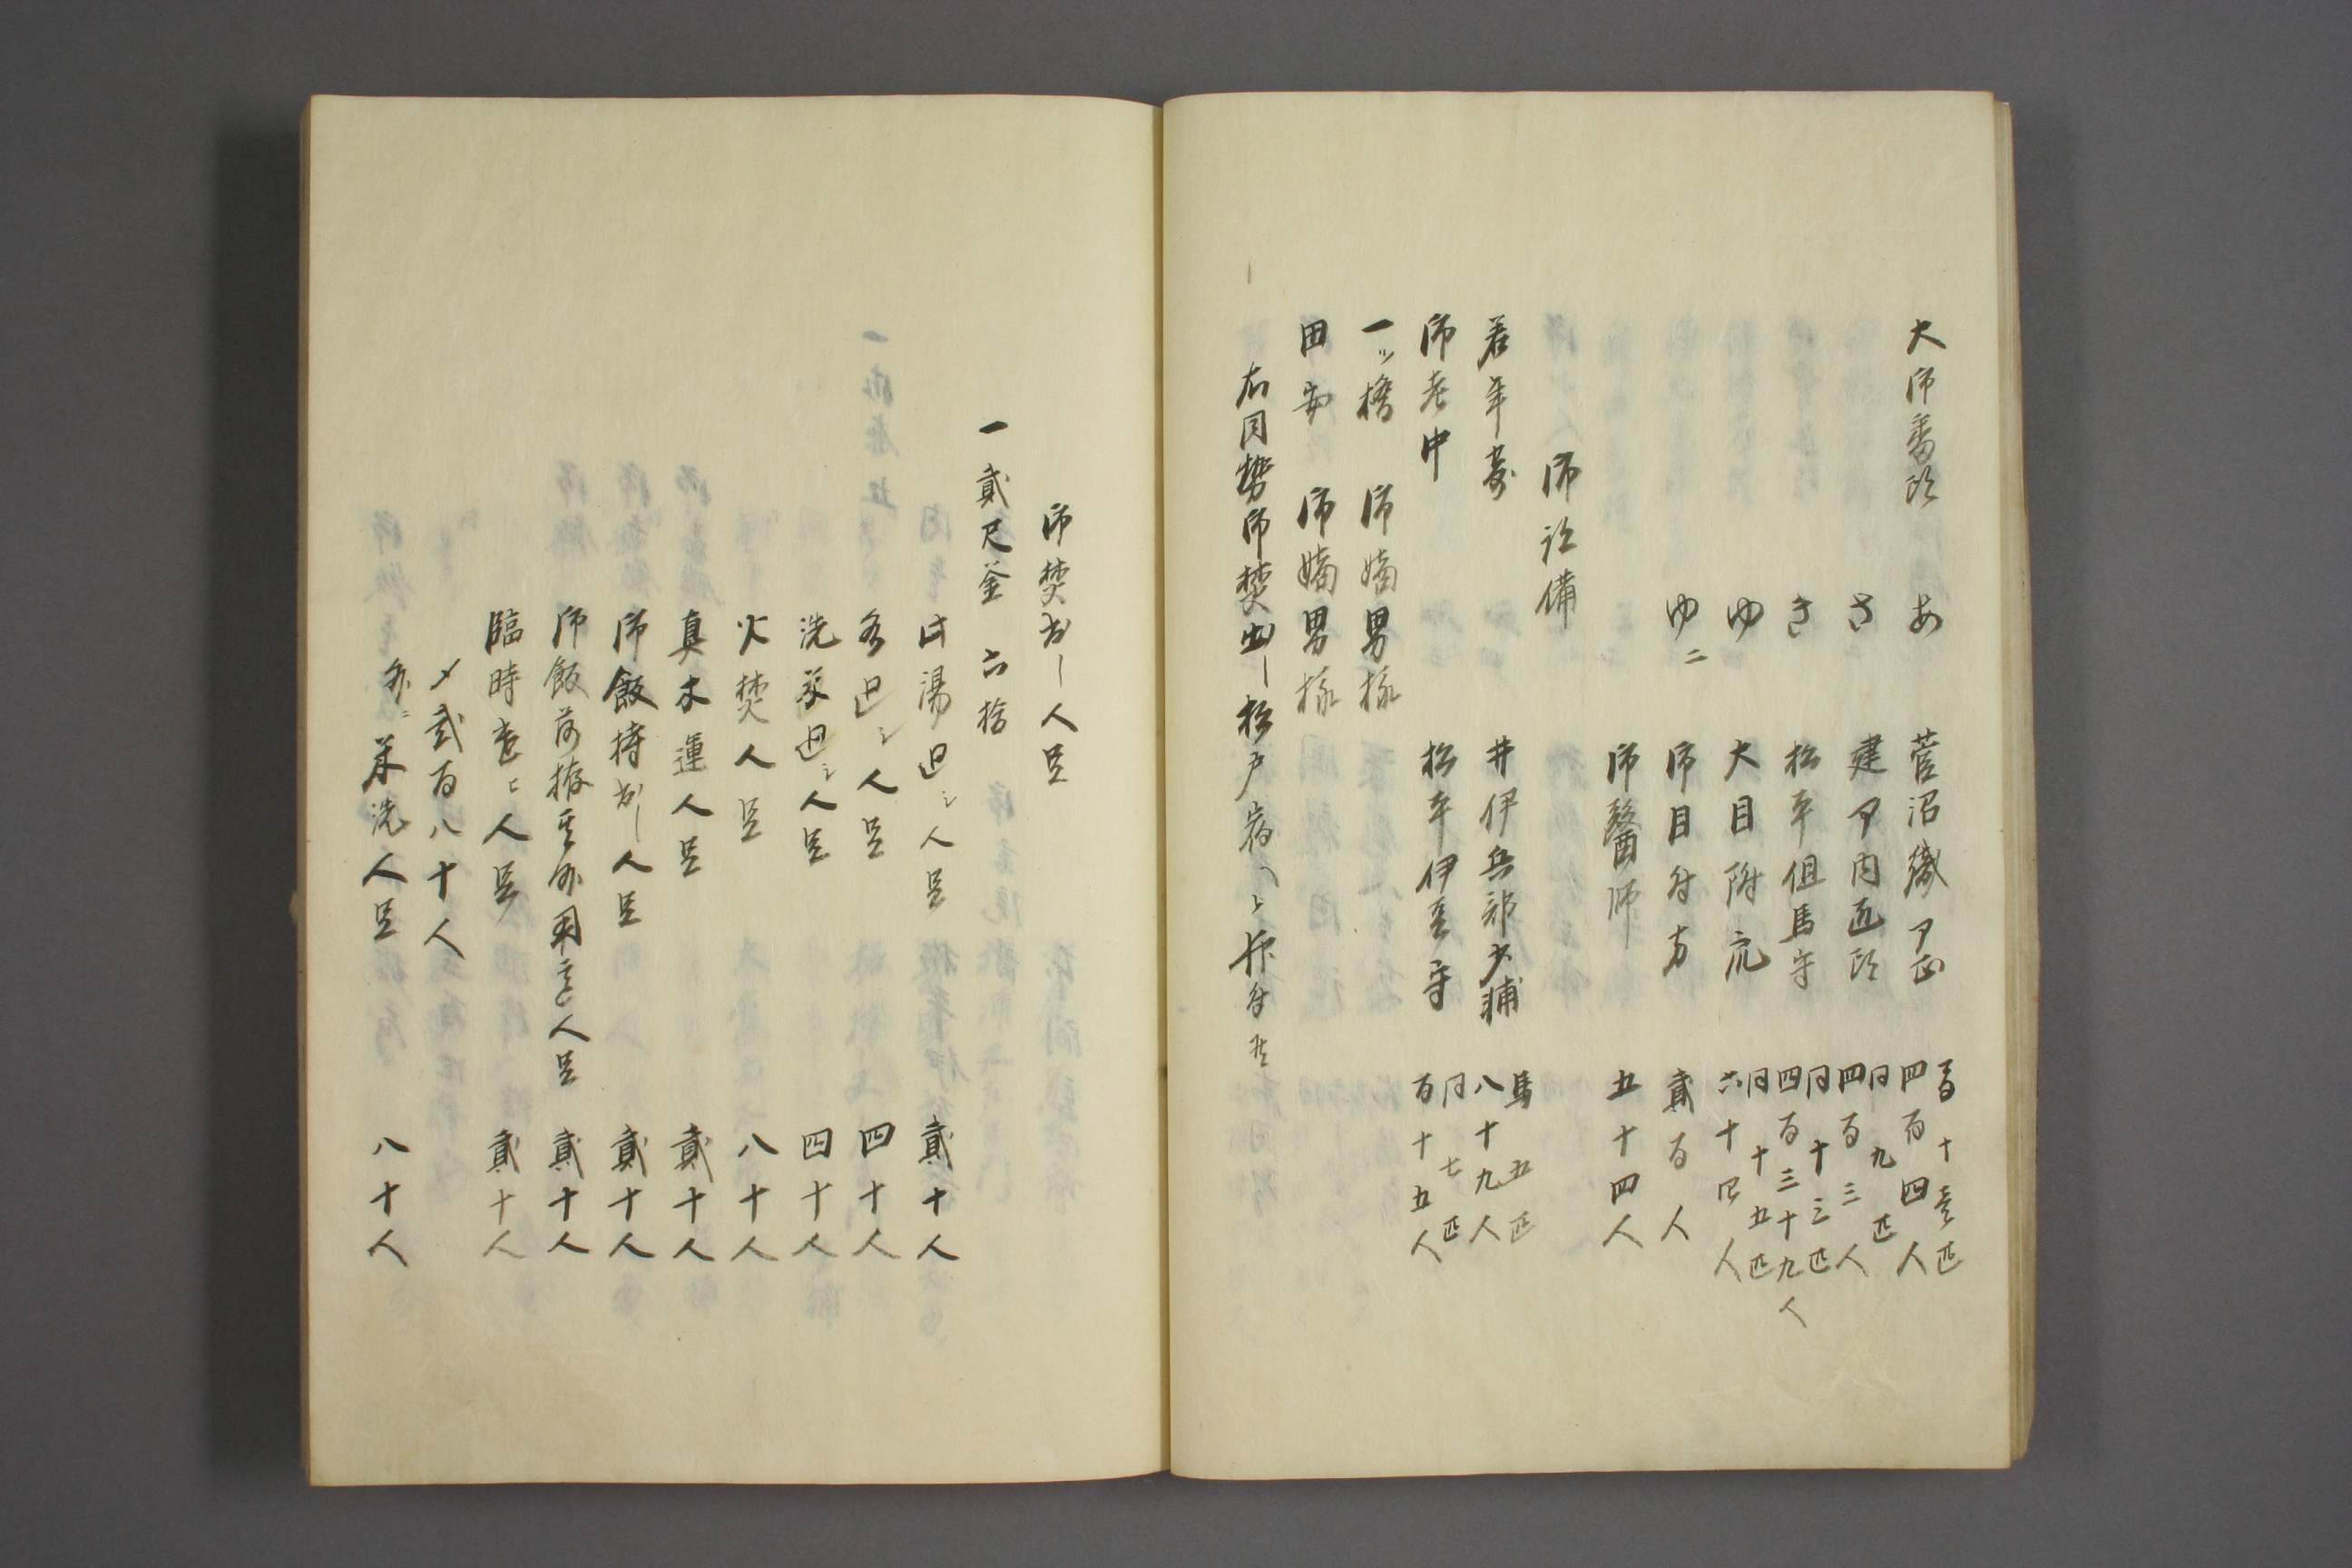 大御番頭　あ　菅沼織部正　馬十壱匹
四百四人
さ　建部内匠頭　同九匹
四百三人
き　松平但馬守　同十三匹
四百三十九人
ゆ　大目附衆　同十五匹
六十四人
ゆ二　御目付方　貳百人
御醫師　五十四人
御跡備
若年寄　井伊兵部少輔　馬五匹
八十九人
御老中　松平伊豆守　同七匹
百十五人
一ツ橋　御嫡男様
田安　御嫡男様
右同勢御焚出シ松戸宿
御焚出シ人足
一貳尺釜　六拾
此湯廻シ人足　貳十人
水廻シ人足　四十人
洗米廻シ人足　四十人
火焚人足　八十人
真木運人足　貳十人
御飯持出シ人足　貳十人
御飯荷拵其外用意人足　貳十人
臨時遣ヒ人足　貳十人
〆貳百八十人
外ニ米洗人足　八十人